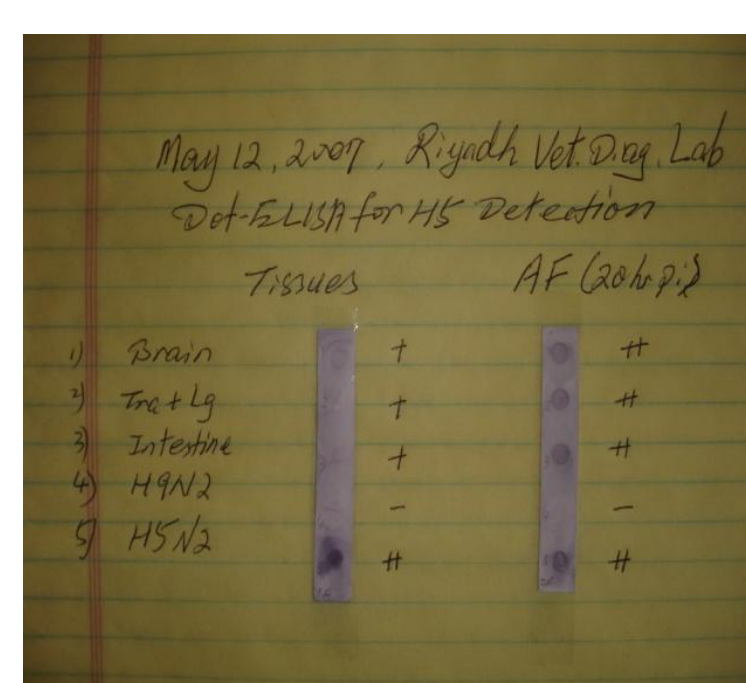 May 12, 2007, Riyadh Vet. Diag. Lab
Dot-ELISA for H5 Detection
Tissues AF (20 hr p.i)
1) Brain + ++
2) Tra + Lg + ++
3) Intestine + ++
4) H9N2 - -
5) H5N2 ++ ++